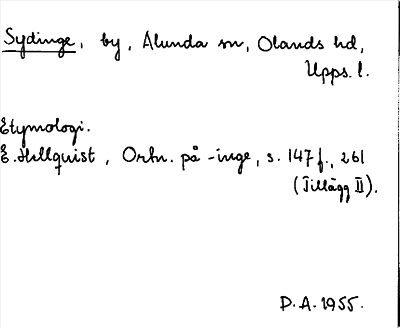 Sydinge, by, Alunda sn, Olands hd,
Upps. l.
Etymologi.
E. Hellquist, Ortn. på -inge, s. 147 f., 261
(Tillägg II).
D.A. 1955.